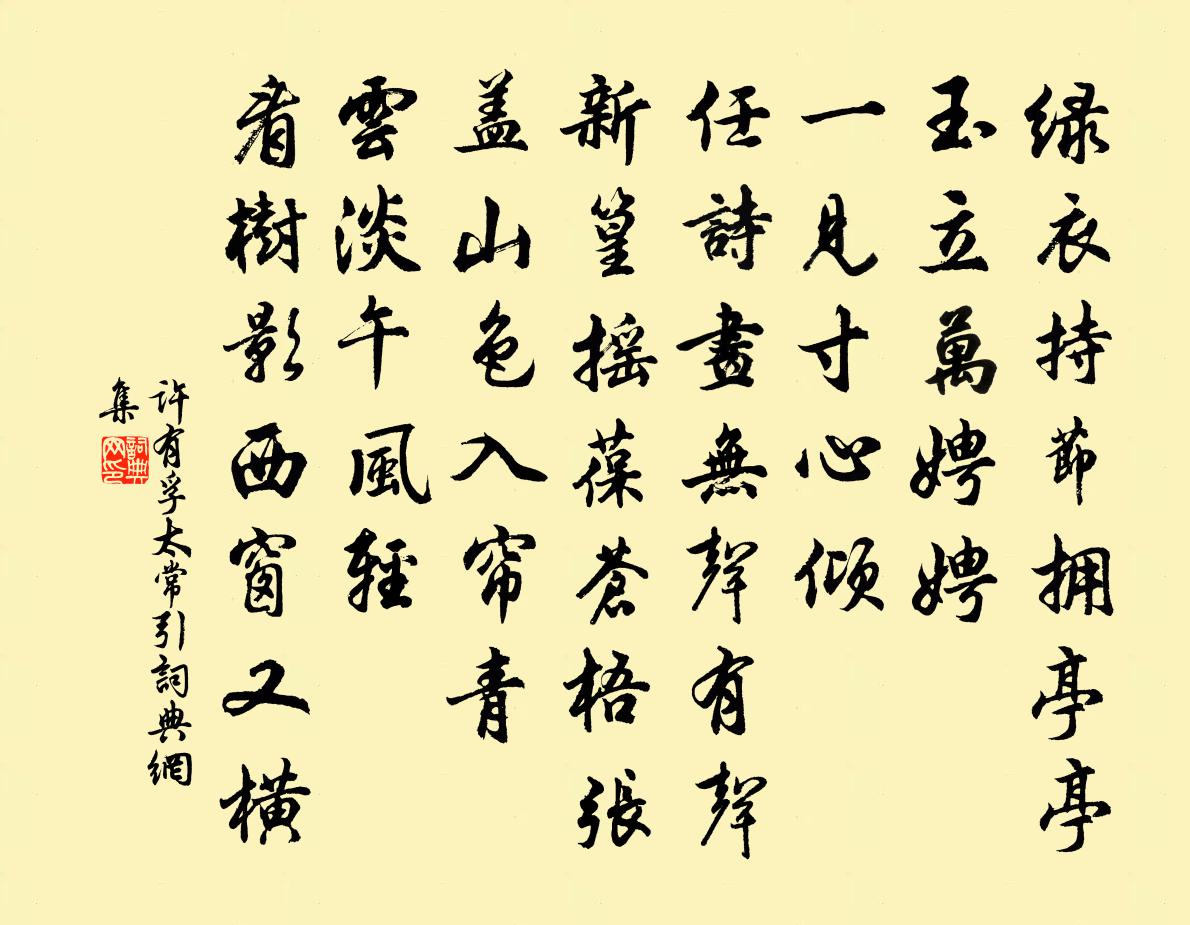 绿衣持節拥亭亭
玉立萬娉娉
一見寸心倾
任詩畫無聲有聲
新篁摇葆蒼梧張
盖山色入帘青
雲淡午風輕
看樹影西窗又橫
許有孚太常引詞典網
集
詞典
网印